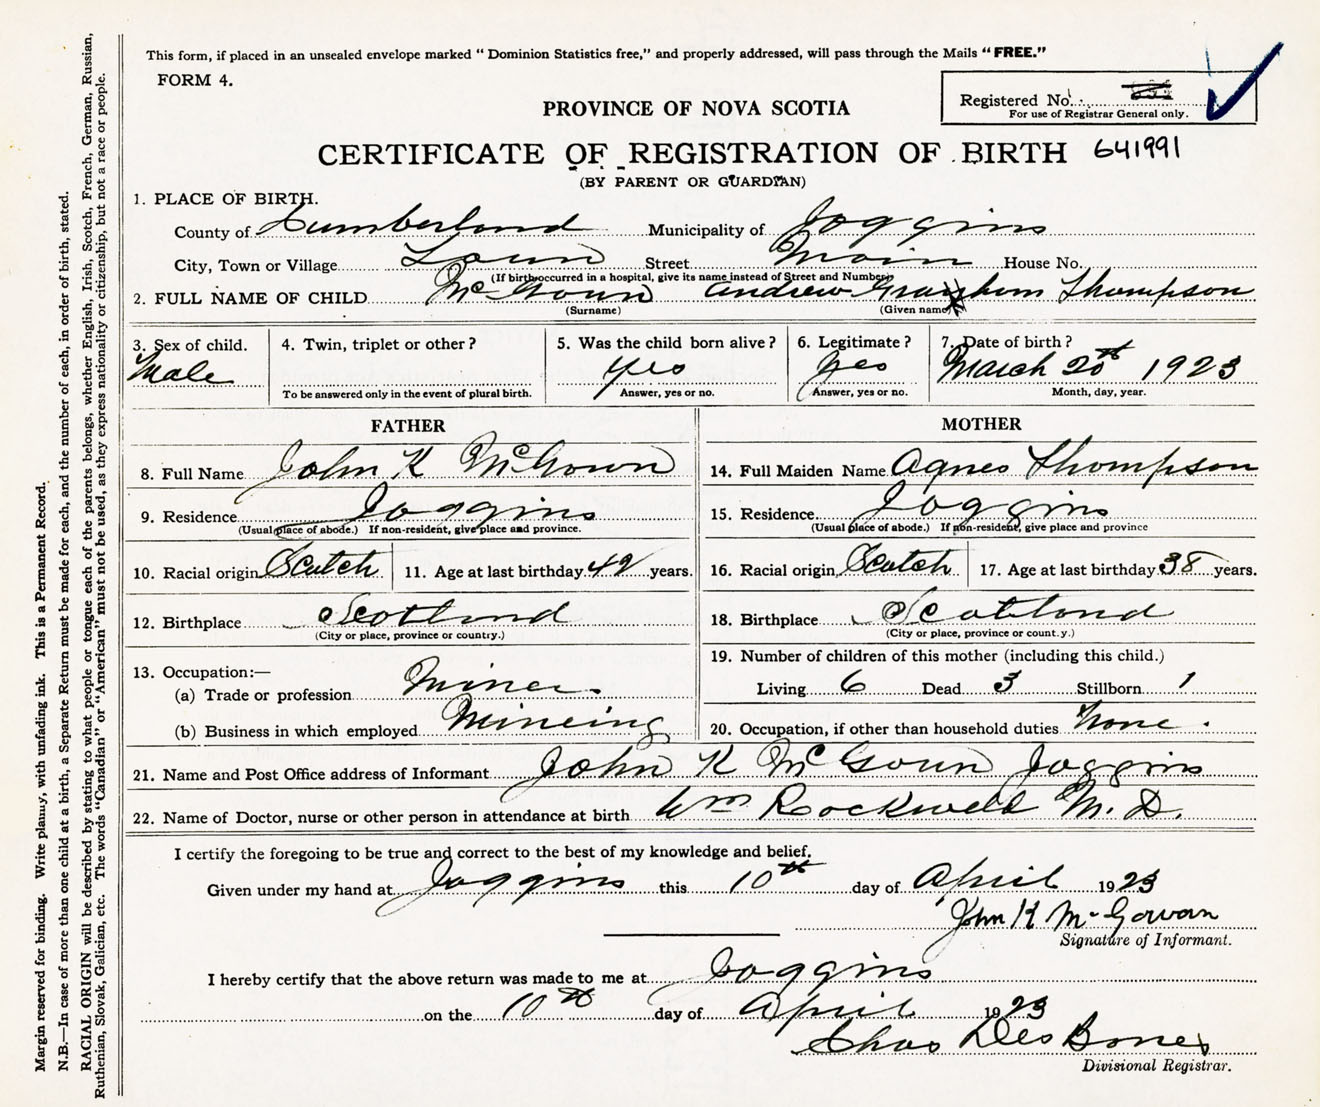 This form, if placed in an unsealed envelope marked "Dominion Statistics free," and properly addressed, will pass through the Mails "FREE."
FORM 4.
Registered No.
For use of Registrar General only.
PROVINCE OF NOVA SCOTIA
CERTIFICATE OF REGISTRATION OF BIRTH 641991
(BY PARENT OR GUARDIAN)
1. PLACE OF BIRTH.
County of Cumberland Municipality of Joggins
City, Town or Village Town Street Main House No.
(If birth occurred in a hospital, give its name instead of Street and Number)
2. FULL NAME OF CHILD McGoun Andrew Graham Thompson
(Surname) (Given name)
3. Sex of child. 4. Twin, triplet or other? 5. Was the child born alive? 6. Legitimate? 7. Date of birth?
Male yes yes March 20th 1923
To be answered only in the event of plural birth. Answer, yes or no. Answer, yes or no. Month, day, year.
FATHER MOTHER
8. Full Name John K McGoun 14. Full Maiden Name Agnes Thompson
9. Residence Joggins 15. Residence Joggins
(Usual place of abode.) If non-resident, give place and province. (Usual place of abode.) If non-resident, give place and province
10. Racial origin Scotch 11. Age at last birthday 42 years. 16. Racial origin Scotch 17. Age at last birthday 38 years.
12. Birthplace Scotland 18. Birthplace Scotland
(City or place, province or country.) (City or place, province or count.y.)
13. Occupation:— 19. Number of children of this mother (including this child.)
(a) Trade or profession Miner Living 6 Dead 3 Stillborn 1
(b) Business in which employed Mineing 20. Occupation, if other than household duties None.
21. Name and Post Office address of Informant John K McGoun Joggins
22. Name of Doctor, nurse or other person in attendance at birth Wm Rockwell M.D.
I certify the foregoing to be true and correct to the best of my knowledge and belief.
Given under my hand at Joggins this 10th day of April 1923
John K McGowan
Signature of Informant.
I hereby certify that the above return was made to me at Joggins
on the 10th day of April 1923
Chas Des
Divisional Registrar.
Margin reserved for binding. Write plainly, with unfading ink. This is a Permanent Record.
N.B.—In case of more than one child at a birth, a Separate Return must be made for each, and the number of each, in order of birth, stated.
RACIAL ORIGIN will be described by stating to what people or tongue each of the parents belongs, whether English, Irish, Scotch, French, German, Russian,
Ruthenian, Slovak, Galician, etc. The words "Canadian" or "American" must not be used, as they express nationality or citizenship, but not a race or people.